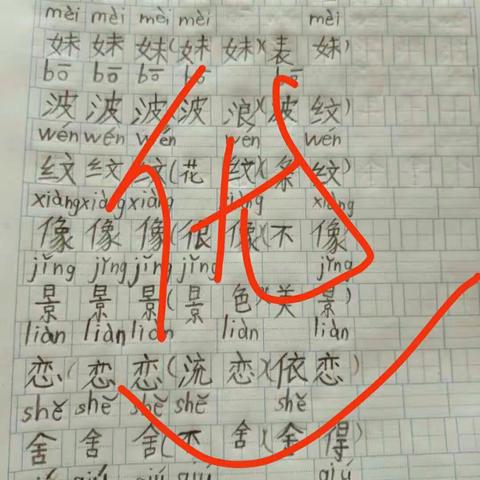 mèi mèi mèi mèi mèi
妹 妹 妹(妹 妹)(表 妹)
bō bō bō bō
波 波 波(波 浪)(波 纹)
wén wén wén wén wén
纹 纹 纹(花 纹)(条 纹)
xiàng xiàng xiàng xiàng xiàng
像 像 像(很 像)(不 像)
jǐng jǐng jǐng jǐng jǐng
景 景 景(景 色)(美 景)
liàn liàn liàn liàn liàn
恋 恋 恋(流 恋)(依 恋)
shě shě shě shě shě
舍 舍 舍(不 舍)(舍 得)
优